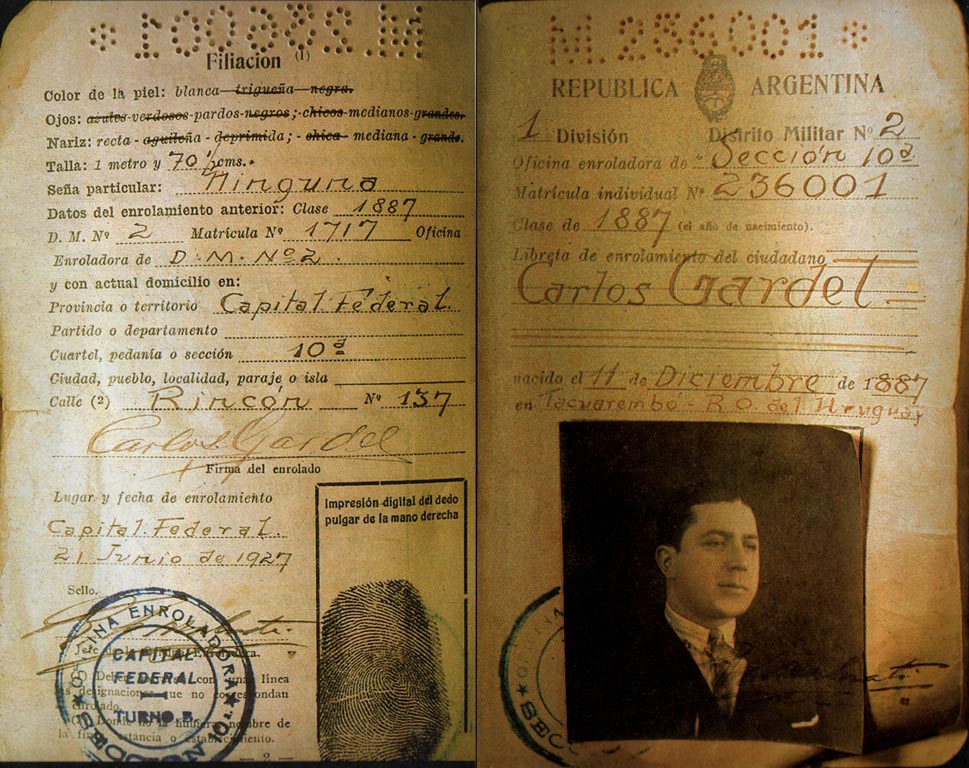 *100652.M
Filiacion (1)
Color de la piel: blanca - trigueña - negra.
Ojos: azules-verdosos-pardos-negros; - chicos-medianos-grandes.
Nariz: recta - aguileña - deprimida; - chica - mediana - grande.
Talla: 1 metro y 70 ½ cms.
Seña particular: Ninguna
Datos del enrolamiento anterior: Clase 1887
D. M. Nº 2 Matrícula Nº 1717 Oficina
Enroladora de D. M. Nº 2.
y con actual domicilio en:
Provincia o territorio Capital Federal
Partido o departamento
Cuartel, pedanía o sección 10ª
Ciudad, pueblo, localidad, paraje o isla
Calle (2) Rincón Nº 137
Carlos Gardel
Firma del enrolado
Lugar y fecha de enrolamiento
Capital Federal.
21 Junio de 1927
Sello.
Impresión digital del dedo
pulgar de la mano derecha
OFICINA ENROLADORA
CAPITAL
FEDERAL
TURNO B.
SECCION
con una línea
designaciones que no correspondan
enrolado.
nombre de
la finca, estancia o establecimiento.
M.236001*
REPUBLICA ARGENTINA
1 División Distrito Militar Nº 2
Oficina enroladora de Sección 10ª
Matrícula individual Nº 236001
Clase de 1887 (el año de nacimiento).
Libreta de enrolamiento del ciudadano
Carlos Gardel
nacido el 11 de Diciembre de 1887
en Tacuarembó - R. O. del Uruguay